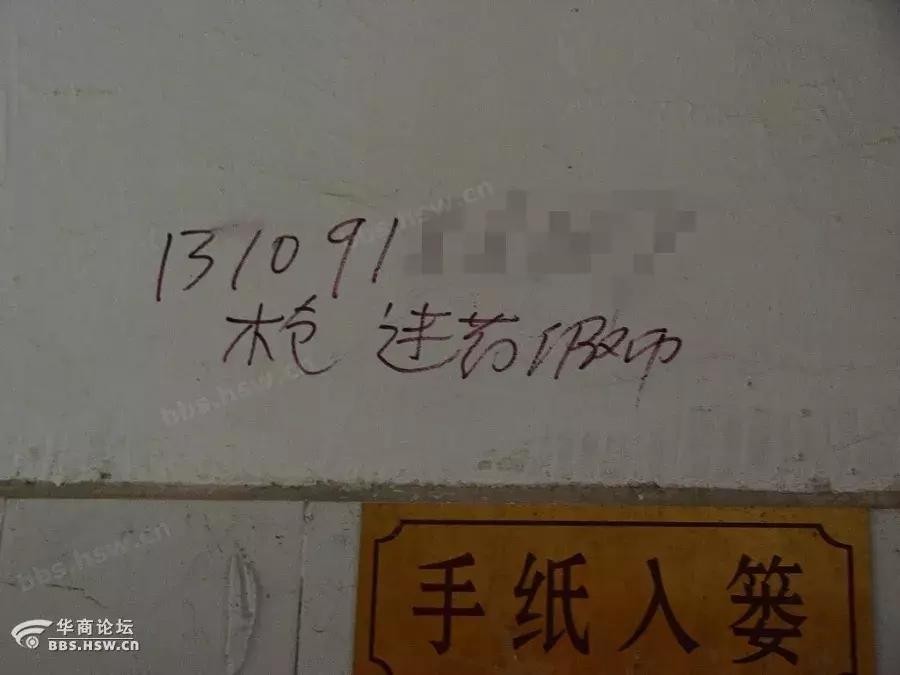 131091
枪 迷药假币
手纸入篓
华商论坛
BBS.HSW.CN
bbs.hsw.cn
bbs.hsw.cn
bbs.hsw.cn